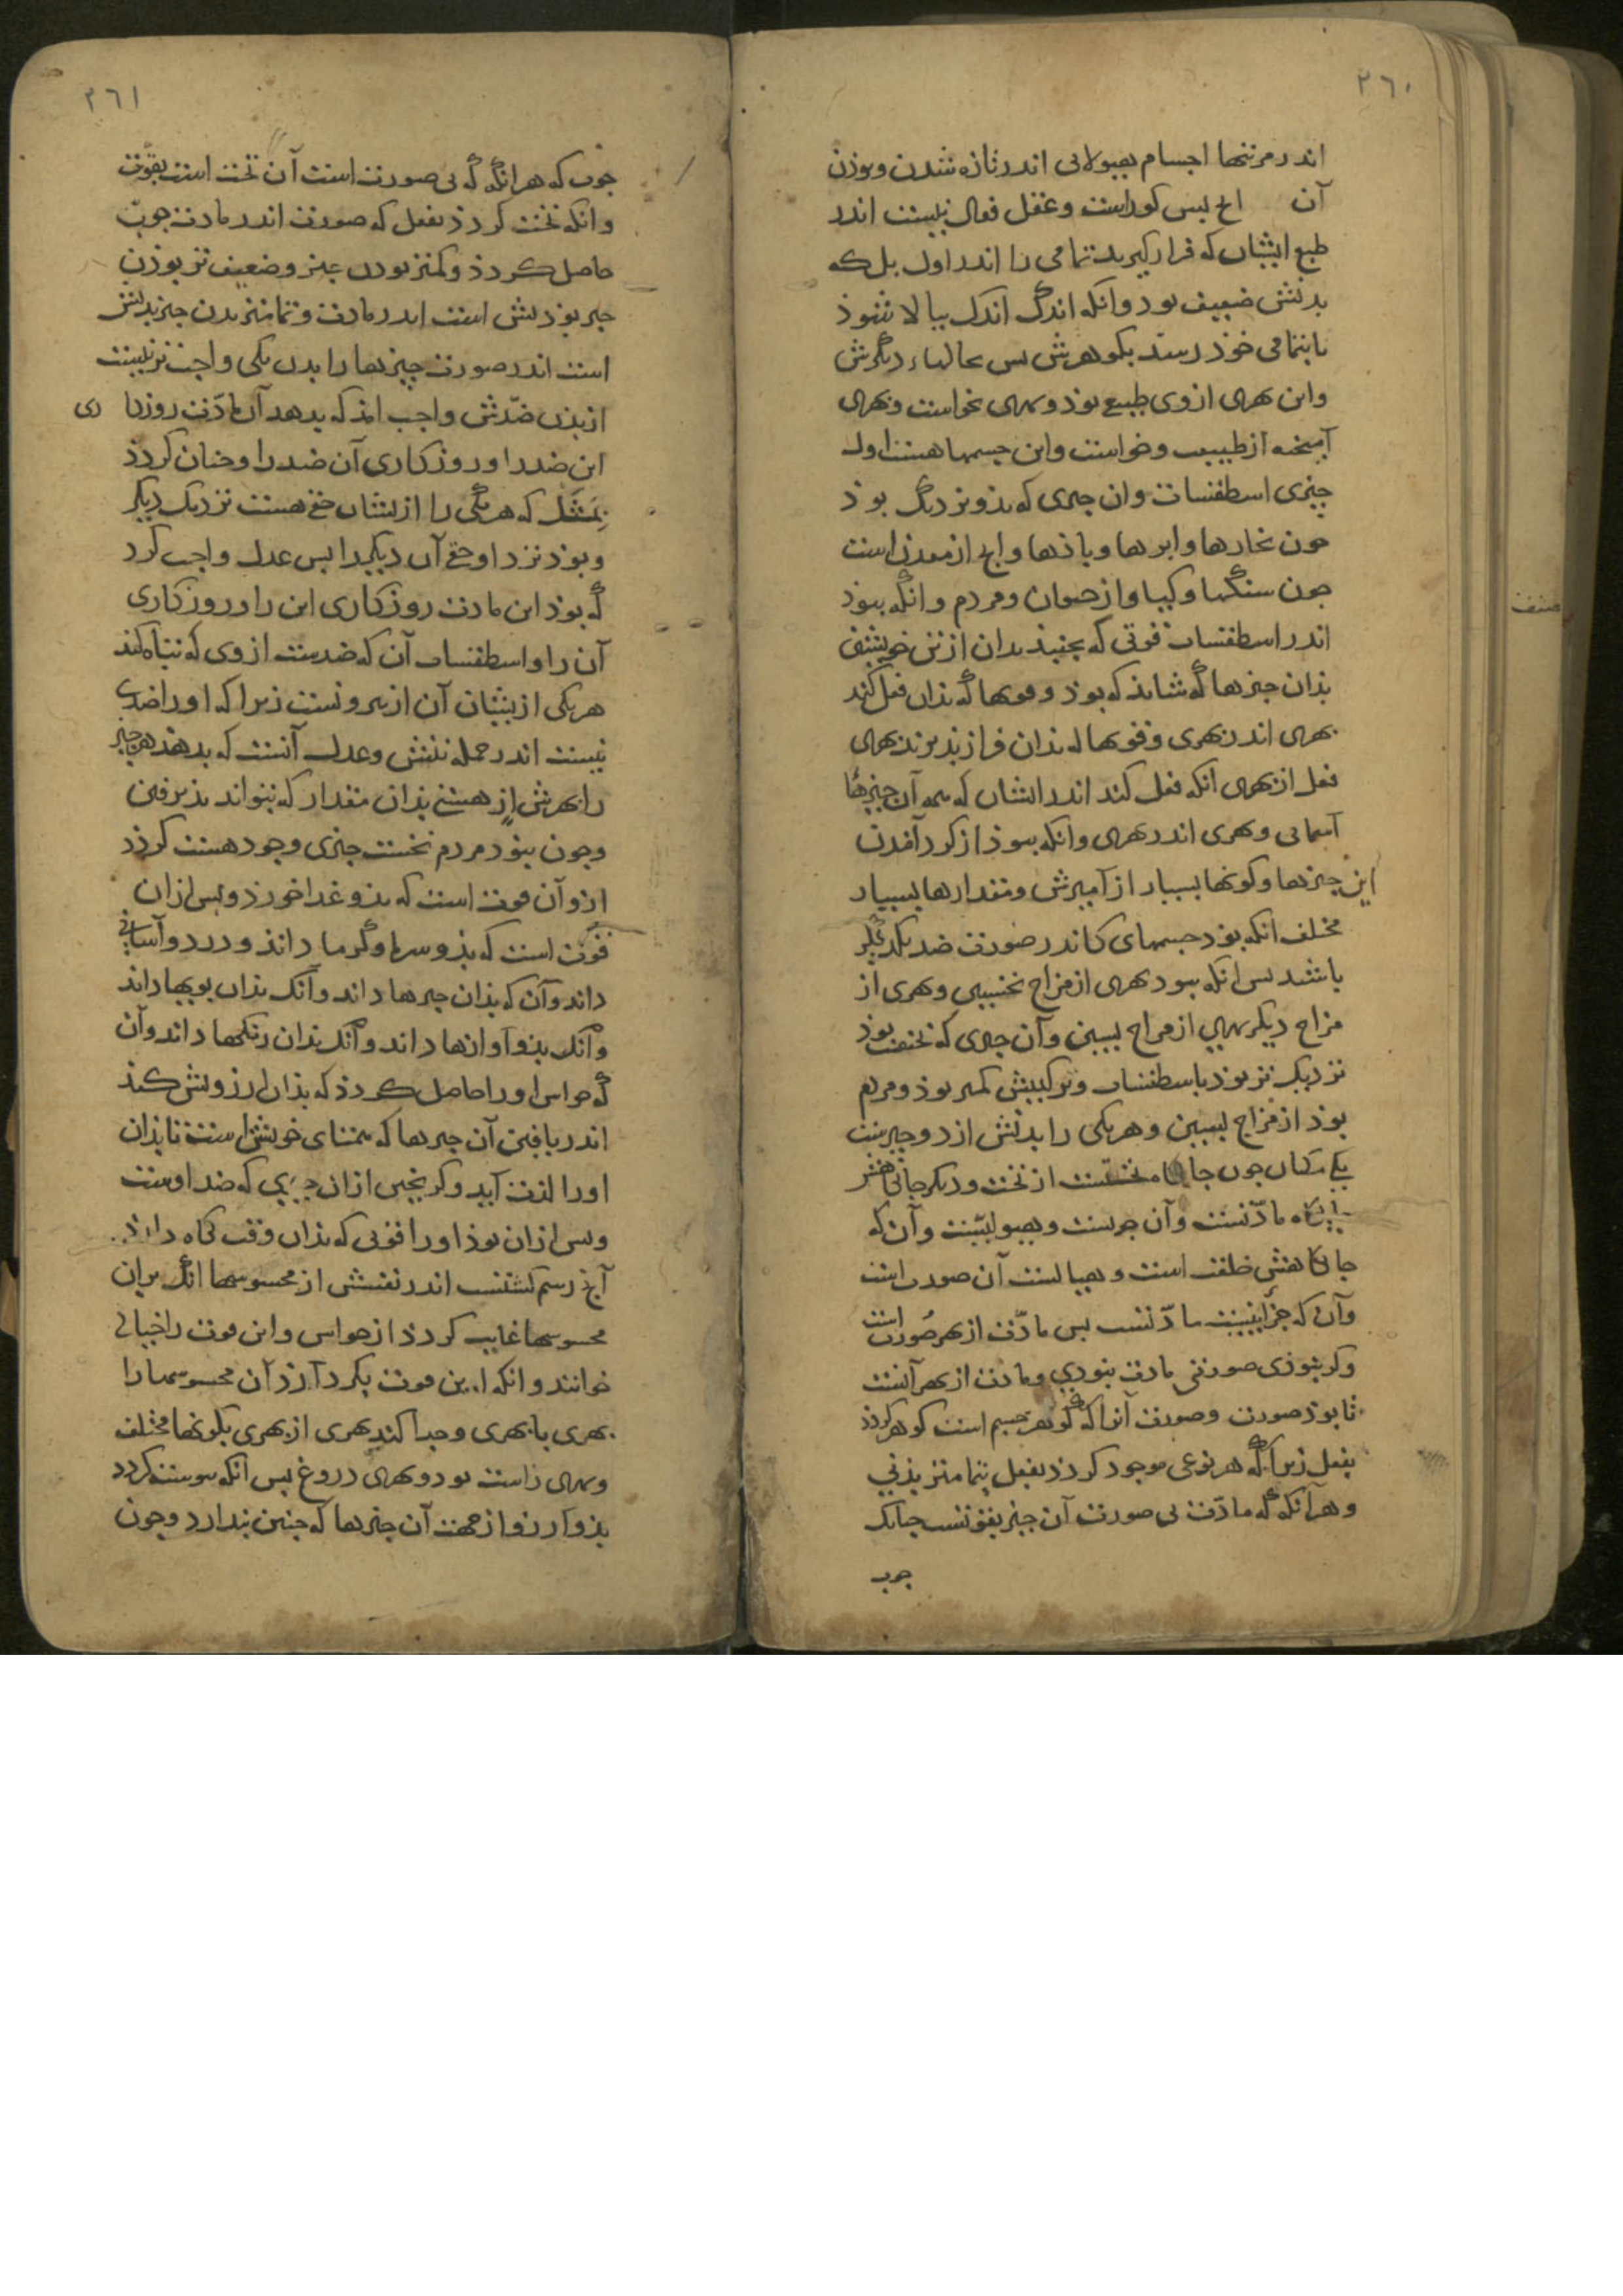 ٢٦٠
اندر مرتبتها اجسام هیولانی اندر تازه شدن و بوذن
آن اج لیس کوراست و عقل فعال نیست اندر
طبع ایشان که قرار کیرند تمامی را اندر اول بل که
بدنش ضعیف بود وانکه اندک اندک ببالا شوذ
تا بتمامی خوذ رسد بکوهرش بس حالهاء دیگرش
واین بهری از وی طبیع بوذ و بهری بخواست و بهری
آمیخته از طبیعت و خواست واین جسمها هست اول
چیزی اسطقسات وان چیزی که بذو نزدیک بوذ
جون بخارها و ابرها و باذها و اج از معدن است
جون سنگها و کیا و از حیوان و مردم و انگه ببوذ
اندر اسطقسات قوتی که بجنبذ بدان از تن خویش
بذان چیزها که شایذ که بوذ و قوتها که بذان فعل کند
بهری اندر بهری و قوتها که بذان فراز بذیرند بهری
فعل از بهری انکه فعل کند اندر ایشان که همه آن چیزها
آسمانی و بهری اندر بهری وانکه ببوذ از کرد آمدن
این چیزها و کونها بسیار از آمیزش و مقدارها بسیار
مختلف انکه بوذ جسمهای کاندر صورت ضد یکدیگر
باشد بس انکه ببود بهری از مزاج نخستین و بهری از
مزاج دیگر بهری از مزاج بسین وآن چیزی که نخست بوذ
نزدیک تر بوذ باسطقسات و ترکیبش کمتر بوذ و مردم
بوذ از مزاج بسین و هر یکی را بدنش از دو چیزست
یکی مکان جون جایگاه تختست از تخت و دیگر جائی هنر
جایگاه مادّتست وآن جرست و هیولیست وآن که
جایگاهش خلقت است و هیأتست آن صورت است
وآن که جزانیست مادّتست بس مادّت از بهر صورت است
وکر نبوذی صورتی مادت نبودی و مادت از بهر آنست
تا بوذ صورت و صورت آنرا که کوهر جسم است کوهر کردذ
بفعل زیرا که هر نوعی موجود کردذ بفعل بتمامتر بذنی
و هر آنکه که مادّت بی صورت آن چیز بقوتست جنانک
جوب
صنف
٢٦١
جوب که هر انگه که بی صورت است آن تخت است بقوّت
وانکه تخت کردذ بفعل که صورت اندر مادت جوب
حاصل کردذ و کمتر بودن چیز و ضعیف تر بوذن
چیز بوذنش است اندر مادت و تمامتر بدن چیز بدنش
است اندر صورت چیزها را بدن یکی واجب تر نیست
از بدن ضدّش واجب امذ که بدهد آن مادّت روزکا ری
این ضد را و روزکاری آن ضد را و جنان کردذ
بمثل که هر یکی را از ایشان حق هست نزدیک دیگر
و بوذ نزد او حق آن دیگر را بس عدل واجب کرد
که بوذ این مادت روزکاری این را و روزکاری
آن را و اسطقسات آن که ضدست از وی که تباه کند
هر یکی از یشان آن از بیرونست زیرا که او را ضدی
نیست اندر جمله تنش و عدل آنست که بدهذ هر چیز
را بهرش از هستی بذان مقدار که بتواند بذیرفتن
و جون ببوذ مردم نخست چیزی وجود هست کردذ
ازو آن قوت است که بذو غذا خورذ و بس ازان
قوّت است که بذو سرما و گرما داند و درد و آسانی
داند وآن که بذان چیزها داند و آنک بذان بویها داند
و آنک بذو آوازها داند و آنک بذان رنکها داند وآن
که حواس او را حاصل کردذ که بذان ارزویش کند
اندر یافتن آن چیزها که همتای خویش است تا بذان
او را لذت آید و کریختن ازان چیزی که ضد اوست
و بس ازان بوذ او را قوتی که بذان وقت نگاه دارذ
آج رسم کشتست اندر نفسش از محسوسها انگه بران
محسوسها غایب کردذ از حواس واین قوت را خیالی
خوانند وانکه این قوت بکرد آرذ آن محسوسها را
بهری با بهری و جدا کند بهری از بهری بکونها مختلف
و بهری راست بود و بهری دروغ بس انکه بوست کردد
بذو آرزو از جهت آن چیزها که جنین بندارد و جون